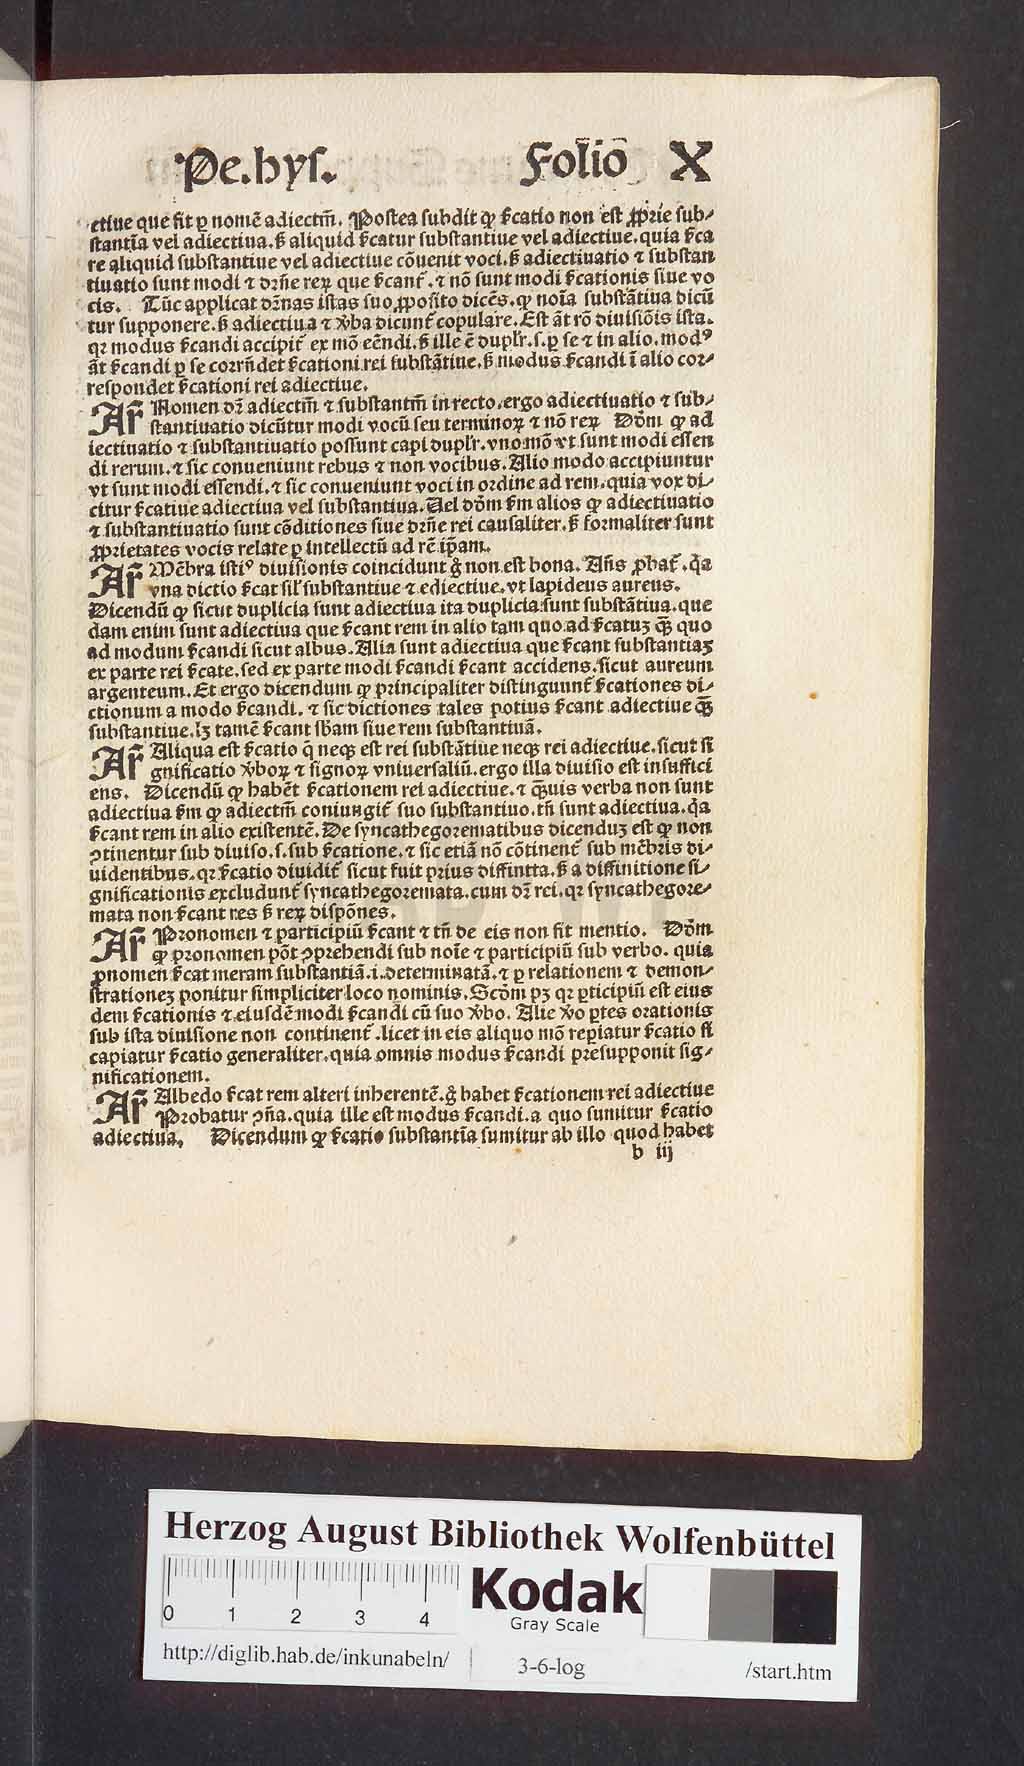 Pe.hys. Folio̅ X
ctiue que fit ꝑ nomē adiectm̄. Postea subdit ꝙ ſ̄catio non est ꝓprie sub⸗
stantia vel adiectiua. ß aliquid ſ̄catur substantiue vel adiectiue. quia ſ̄ca
re aliquid substantiue vel adiectiue cōuenit voci. ß adiectiuatio ⁊ substan
tiuatio sunt modi ⁊ dr̄ne reꝝ que ſ̄cant̄. ⁊ nō sunt modi ſ̄cationis siue vo
cis. Tūc applicat dr̄nas istas suo ꝓposito dicēs. ꝙ noīa substātiua dicū
tur supponere. ß adiectiua ⁊ v̄ba dicunt̄ copulare. Est āt rō diuisiōis ista.
qꝛ modus ſ̄candi accipit̄ ex mō eēndi. ß ille ē duplr̄. s. ꝑ se ⁊ in alio. modꝰ
āt ſ̄candi ꝑ se corrn̄det ſ̄cationi rei substātiue. ß modus ſ̄candi ī alio cor⸗
respondet ſ̄cationi rei adiectiue.
Ar̄ Nomen dr̄ adiectm̄ ⁊ substantm̄ in recto. ergo adiectiuatio ⁊ sub⸗
stantiuatio dicūtur modi vocū seu terminoꝝ ⁊ nō reꝝ Dōm ꝙ ad
iectiuatio ⁊ substantiuatio possunt capi duplr̄. vno mō vt sunt modi essen
di rerum. ⁊ sic conueniunt rebus ⁊ non vocibus. Alio modo accipiuntur
vt sunt modi essendi. ⁊ sic conueniunt voci in ordine ad rem. quia vox di⸗
citur ſ̄catiue adiectiua vel substantiua. Uel dōm ſ̄m alios ꝙ adiectiuatio
⁊ substantiuatio sunt cōditiones siue dr̄ne rei causaliter. ß formaliter sunt
ꝓprietates vocis relate ꝑ intellectū ad rē ip̄am.
Ar̄ Mēbra istiꝰ diuisionis coincidunt g̊ non est bona. An̄s ꝓbat̄. q̄a
vna dictio ſ̄cat sil̄ substantiue ⁊ ediectiue. vt lapideus aureus.
Dicendū ꝙ sicut duplicia sunt adiectiua ita duplicia sunt substātiua. que
dam enim sunt adiectiua que ſ̄cant rem in alio tam quo ad ſ̄catuꝫ qȝ̄ quo
ad modum ſ̄candi sicut albus. Alia sunt adiectiua que ſ̄cant substantiaꝫ
ex parte rei ſ̄cate. sed ex parte modi ſ̄candi ſ̄cant accidens. sicut aureum
argenteum. Et ergo dicendum ꝙ principaliter distinguunt̄ ſ̄cationes di⸗
ctionum a modo ſ̄candi. ⁊ sic dictiones tales potius ſ̄cant adiectiue qȝ̄
substantiue. lꝫ tamē ſ̄cant sb̄am siue rem substantiuā.
Ar̄ Aliqua est ſ̄catio q̄ neqꝫ est rei substātiue neqꝫ rei adiectiue. sicut si
gnificatio v̄boꝝ ⁊ signoꝝ vniuersaliū. ergo illa diuisio est insuffici
ens. Dicendū ꝙ habēt ſ̄cationem rei adiectiue. ⁊ qȝ̄uis verba non sunt
adiectiua ſ̄m ꝙ adiectm̄ coniungit̄ suo substantiuo. tn̄ sunt adiectiua. q̄a
ſ̄cant rem in alio existentē. De syncathegorematibus dicenduꝫ est ꝙ non
ꝯtinentur sub diuiso. s. sub ſ̄catione. ⁊ sic etiā nō cōtinent̄ sub mēbris di⸗
uidentibus. qꝛ ſ̄catio diuidit̄ sicut fuit prius diffinita. ß a diffinitione si⸗
gnificationis excludunt̄ syncathegoremata. cum dr̄ rei. qꝛ syncathegore⸗
mata non ſ̄cant res ß reꝝ dispōnes.
Ar̄ Pronomen ⁊ participiū ſ̄cant ⁊ tn̄ de eis non fit mentio. Dōm
ꝙ pronomen pōt ꝯprehendi sub noīe ⁊ participiū sub verbo. quia
ꝓnomen ſ̄cat meram substantiā .i. determinatā. ⁊ ꝑ relationem ⁊ demon⸗
strationeꝫ ponitur simpliciter loco nominis. Scdm pꝫ qꝛ ꝑticipiū est eius
dem ſ̄cationis ⁊ eiusdē modi ſ̄candi cū suo v̄bo. Alie v̄o ꝑtes orationis
sub ista diuisione non continent̄. licet in eis aliquo mō reperiatur ſ̄catio si
capiatur ſ̄catio generaliter. quia omnis modus ſ̄candi presupponit sig⸗
nificationem.
Ar̄ Albedo ſ̄cat rem alteri inherentē. g̊ habet ſ̄cationem rei adiectiue
Probatur ꝯn̄a. quia ille est modus ſ̄candi. a quo sumitur ſ̄catio
adiectiua. Dicendum ꝙ ſ̄catio substantīa sumitur ab illo quod habet
b iij
Herzog August Bibliothek Wolfenbüttel
0 1 2 3 4
Kodak
Gray Scale
http://diglib.hab.de/inkunabeln/ 3-6-log /start.htm